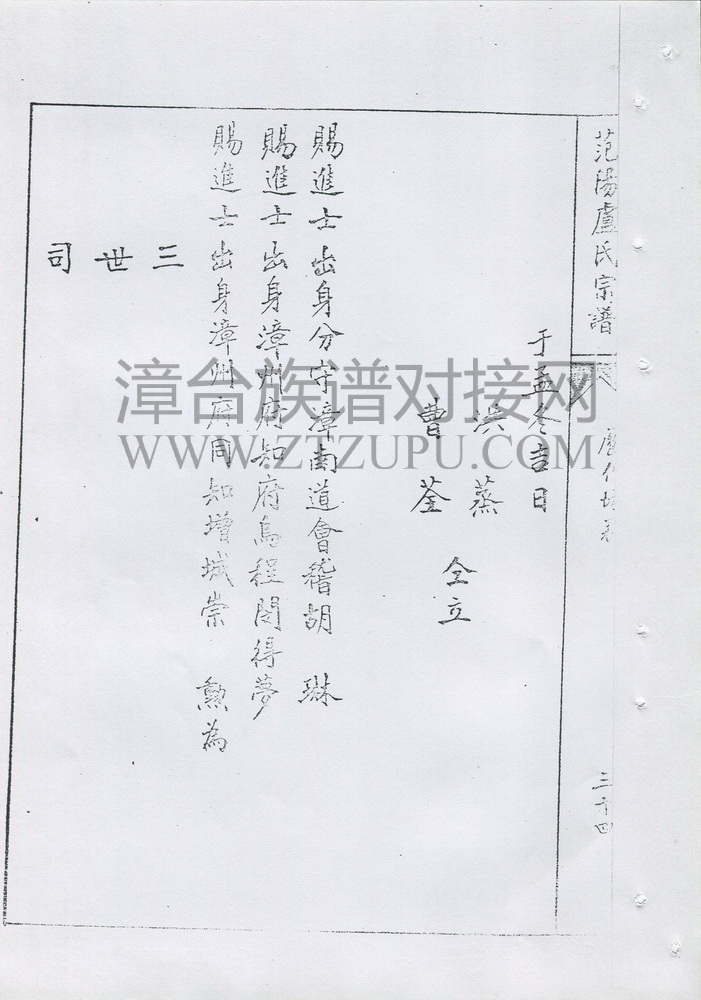 范陽盧氏宗譜
歷代坊表
三十四
于孟冬吉日
洪蒸
曹荃
仝立
賜進士出身分守漳南道會稽胡 琳
賜進士出身漳州府知府烏程閔得夢
賜進士出身漳州府同知增城崇 勲為
三世司
漳台族谱对接网
WWW.ZTZUPU.COM